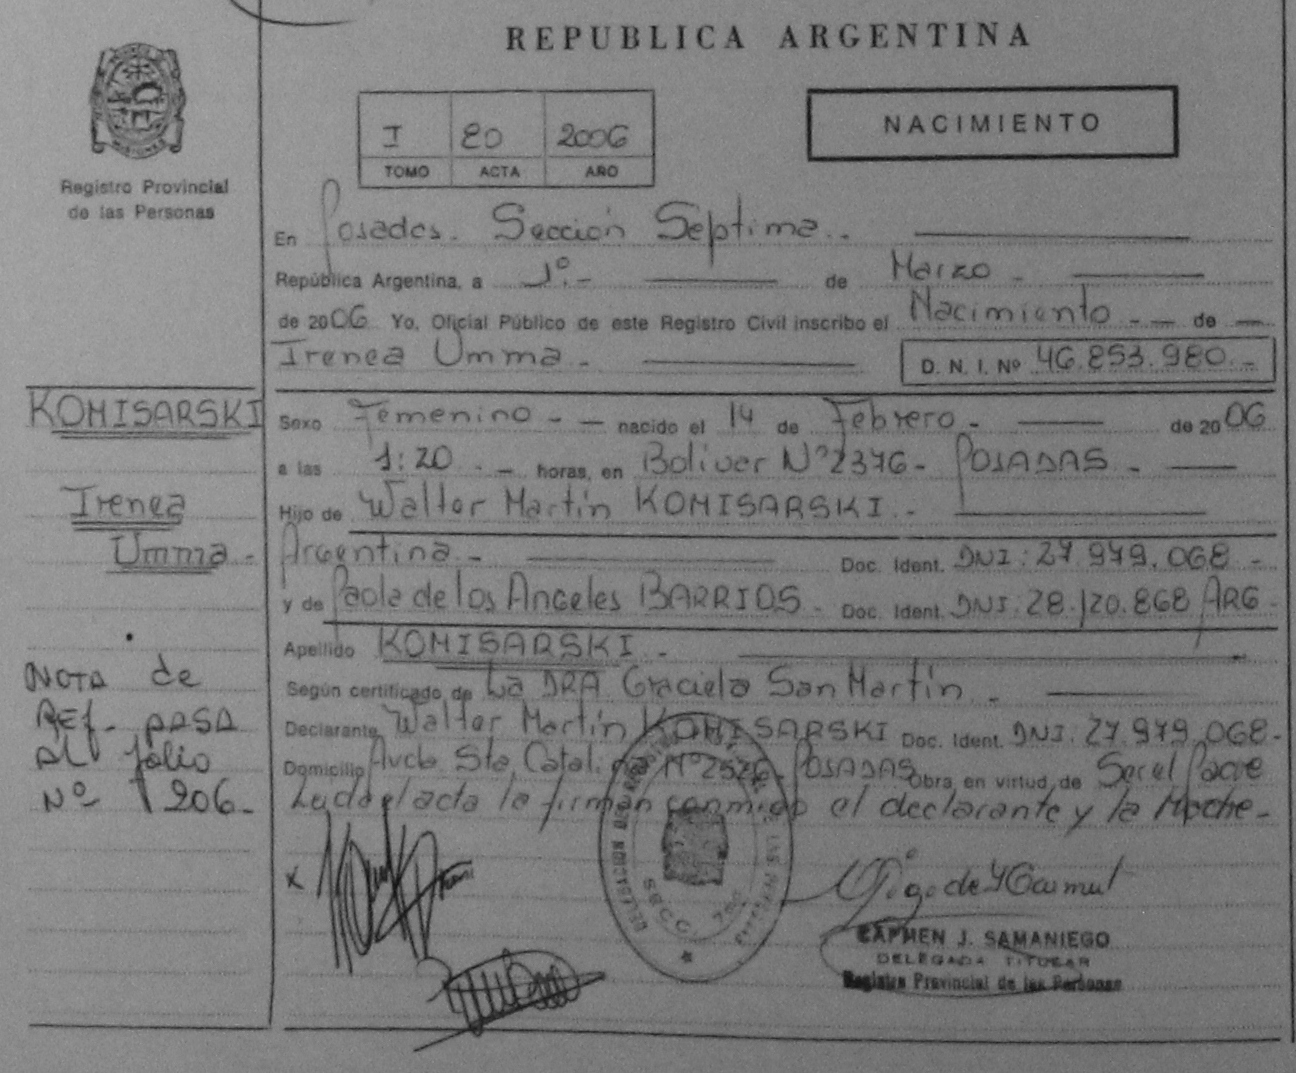 REPUBLICA ARGENTINA
MISIONES
Registro Provincial
de las Personas
I 80 2006
TOMO ACTA AÑO
NACIMIENTO
En Posadas. Sección Séptima.-
República Argentina, a 1º.- de Marzo -
de 2006 Yo, Oficial Público de este Registro Civil inscribo el Nacimiento - - de -
Irenea Umma - D. N. I. Nº 46.853.980.-
KOMISARSKI
Irenea
Umma -
Sexo Femenino - - nacido el 14 de Febrero - de 2006
a las 1:20 - - horas, en Bolivar Nº2376- POSADAS -
Hijo de Walter Martín KOMISARSKI -
Argentina - Doc. Ident. DNI: 27.979.068 -
y de Paola de los Angeles BARRIOS - Doc. Ident. DNI: 28.120.868 ARG -
Apellido KOMISARSKI -
Según certificado de La DRA. Graciela San Martín -
Declarante Walter Martín KOMISARSKI Doc. Ident. DNI: 27.979.068-
Domicilio Avda. Sta. Catalina Nº2526- POSADAS Obra en virtud de Ser el Padre
Leida el acta la firman conmigo el declarante y la Madre-
NOTA de
REf. PASA
AL folio
Nº 206-
DELEGACION DEL REGISTRO
SECC 7ma
CARMEN J. SAMANIEGO
DELEGADA TITULAR
Registro Provincial de las Personas